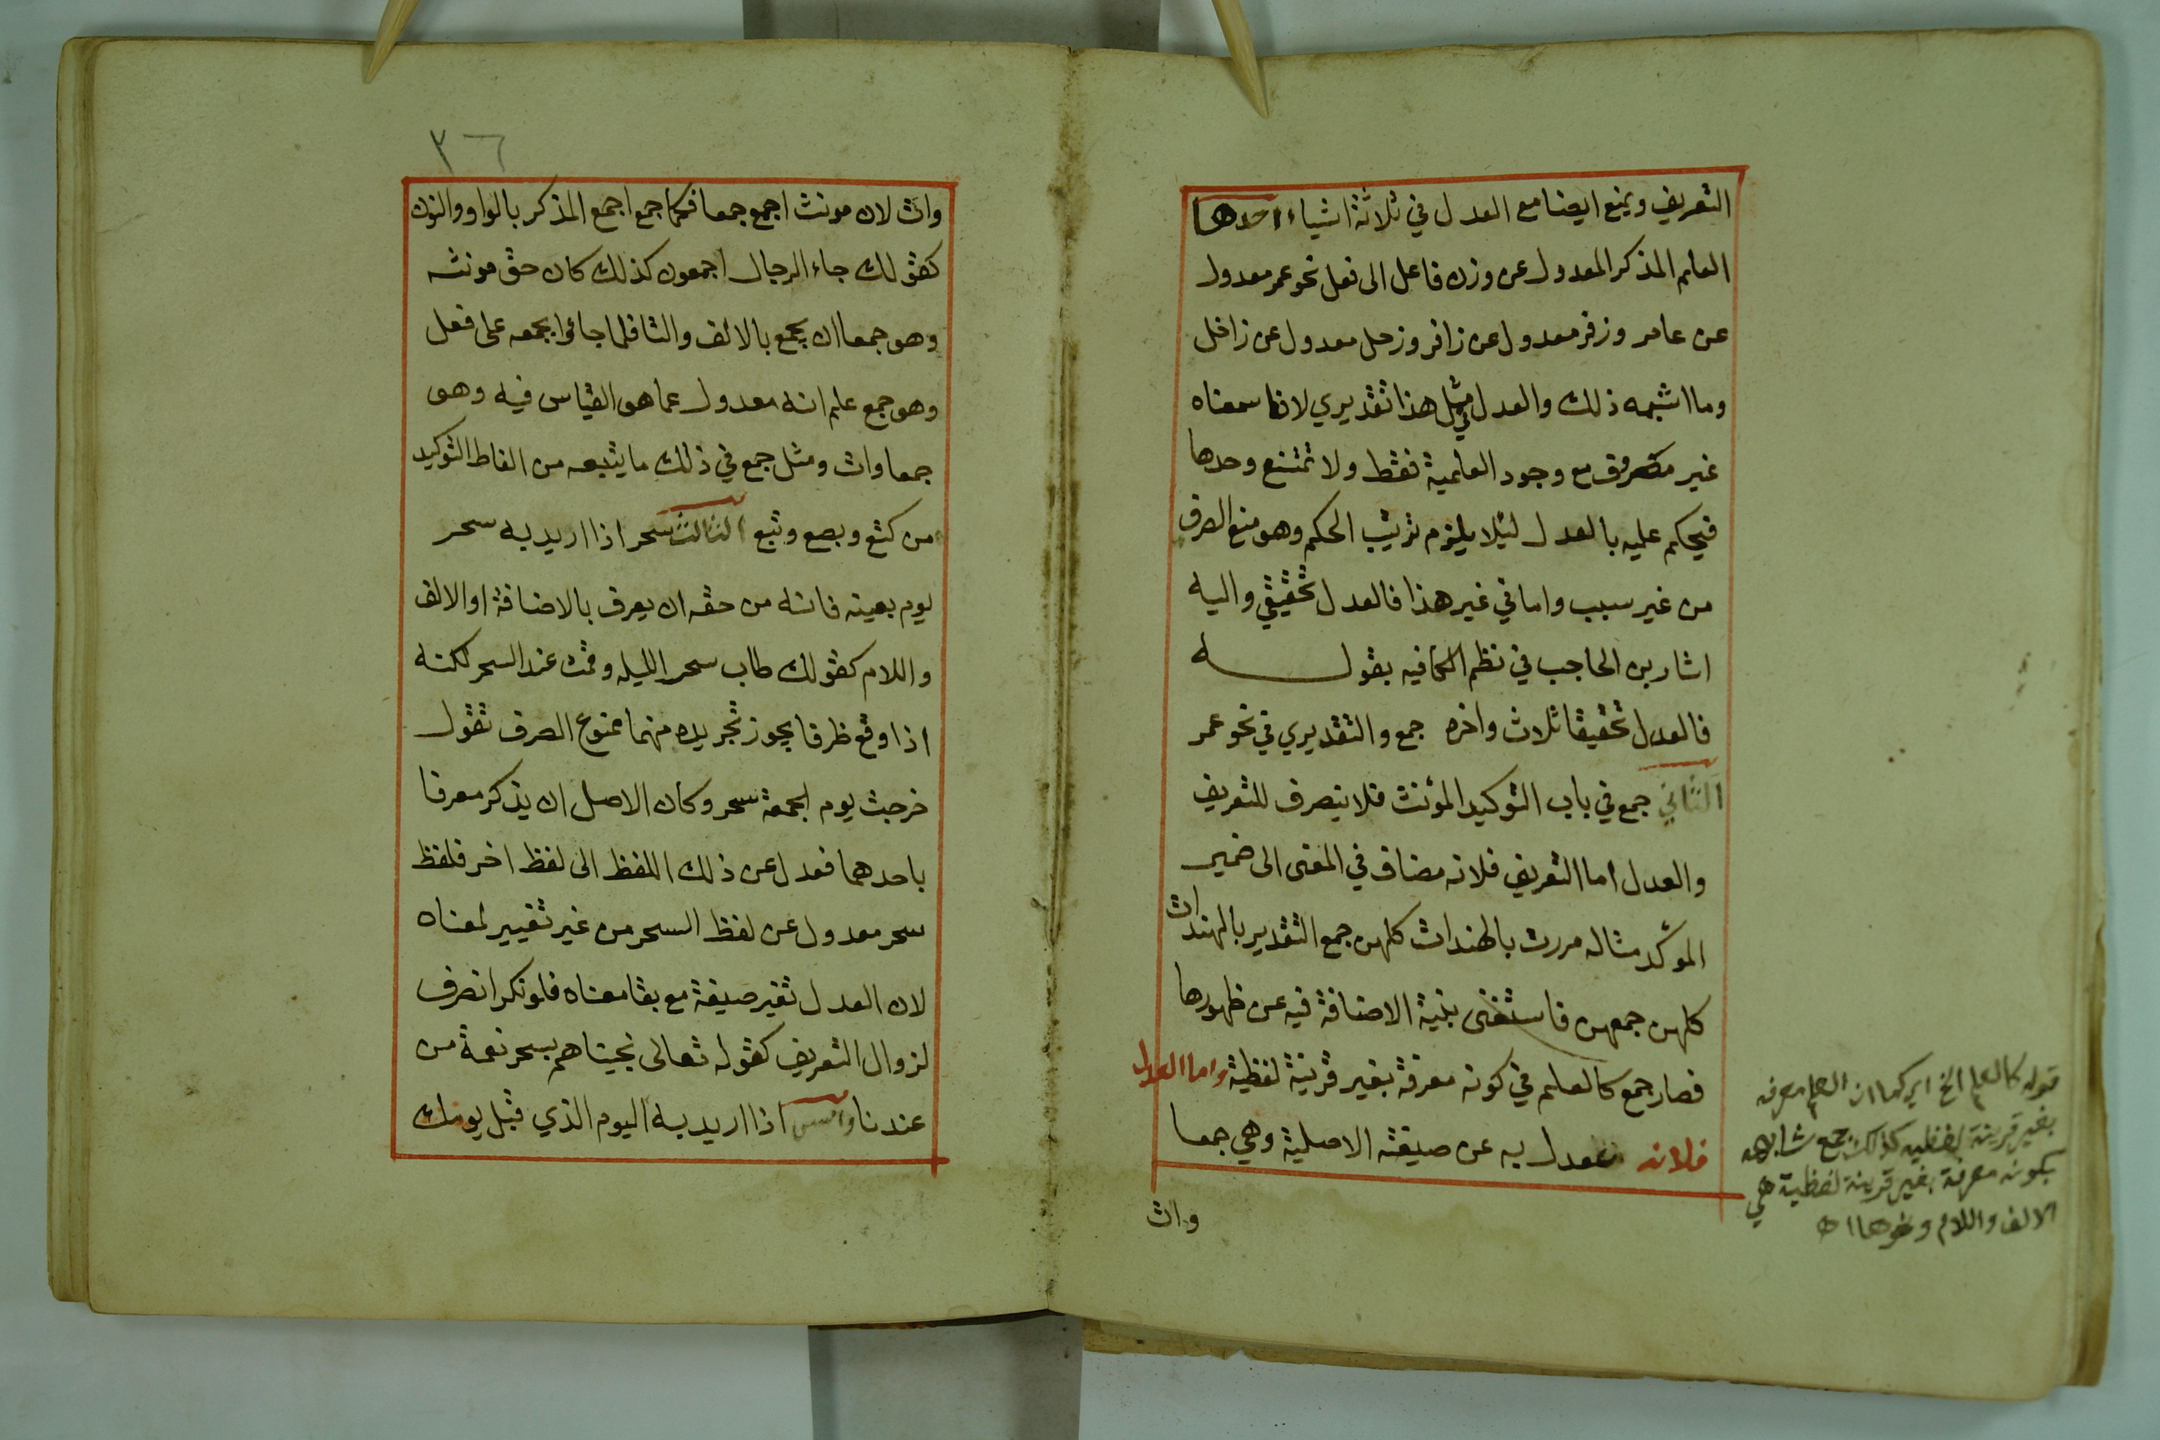 التعريف ويمنع ايضا مع العدل في ثلاثة اشياء احدها
العلم المذكر المعدول عن وزن فاعل الى فعل نحو عمر معدول
عن عامر وزفر معدول عن زافر وزحل معدول عن زاخل
وما اشبهه ذلك والعدل في مثل هذا تقديري لانا سمعناه
غير مصروف مع وجود العلمية فقط ولا تمتنع وحدها
فيحكم عليه بالعدل لئلا يلزم ترتيب الحكم وهو منع الصرف
من غير سبب واما في غير هذا فالعدل تحقيقي واليه
اشار بن الحاجب في نظم الكافيه بقوله
فالعدل تحقيقا ثلاث واخره جمع والتقديري في نحو عمر
الثاني جمع في باب التوكيد المؤنث فلا ينصرف للتعريف
والعدل اما التعريف فلانه مضاف في المعنى الى ضمير
المؤكد مثاله مررت بالهندات كلهن جمع التقدير بالهندات
كلهن جمعهن فاستغنى بنية الاضافة فيه عن ظهورها
فصار جمع كالعلم في كونه معرفة بغير قرينة لفظية واما العدل
فلانه معدل به عن صيغته الاصلية وهي جمعا
وات
قوله كالعلم الخ اي كما ان العلم معرفه
بغير قرينة لفظيه كذلك جمع شابهه
بكونه معرفة بغير قرينة لفظية هي
الالف واللام ونحوها اه
٣٦
وات لان مونث اجمع جمعا فكما جمع اجمع المذكر بالواو والنون
كقولك جاء الرجال اجمعون كذلك كان حق مونثه
وهو جمعا ان يجمع بالالف والتا فلما جائوا بجمعه على فعل
وهو جمع علم انه معدول عما هو القياس فيه وهو
جمعاوات ومثل جمع في ذلك ما يتبعه من الفاظ التوكيد
من كتع وبصع وتبع الثالث سحر اذا اريد به سحر
يوم بعينه فانه من حقه ان يعرف بالاضافة او الالف
واللام كقولك طاب سحر الليله وقمت عند السحر لكنه
اذا وقع ظرفا يجوز تجريده منهما ممنوع الصرف تقول
خرجت يوم الجمعة سحر وكان الاصل ان يذكر معرفا
باحدهما فعدل عن ذلك اللفظ الى لفظ اخر فلفظ
سحر معدول عن لفظ السحر من غير تغيير لمعناه
لان العدل تغير صيغة مع بقا معناه فلو نكر انصرف
لزوال التعريف كقوله تعالى نجيناهم بسحر نعمة من
عندنا وامس اذا اريد به اليوم الذي قبل يومك